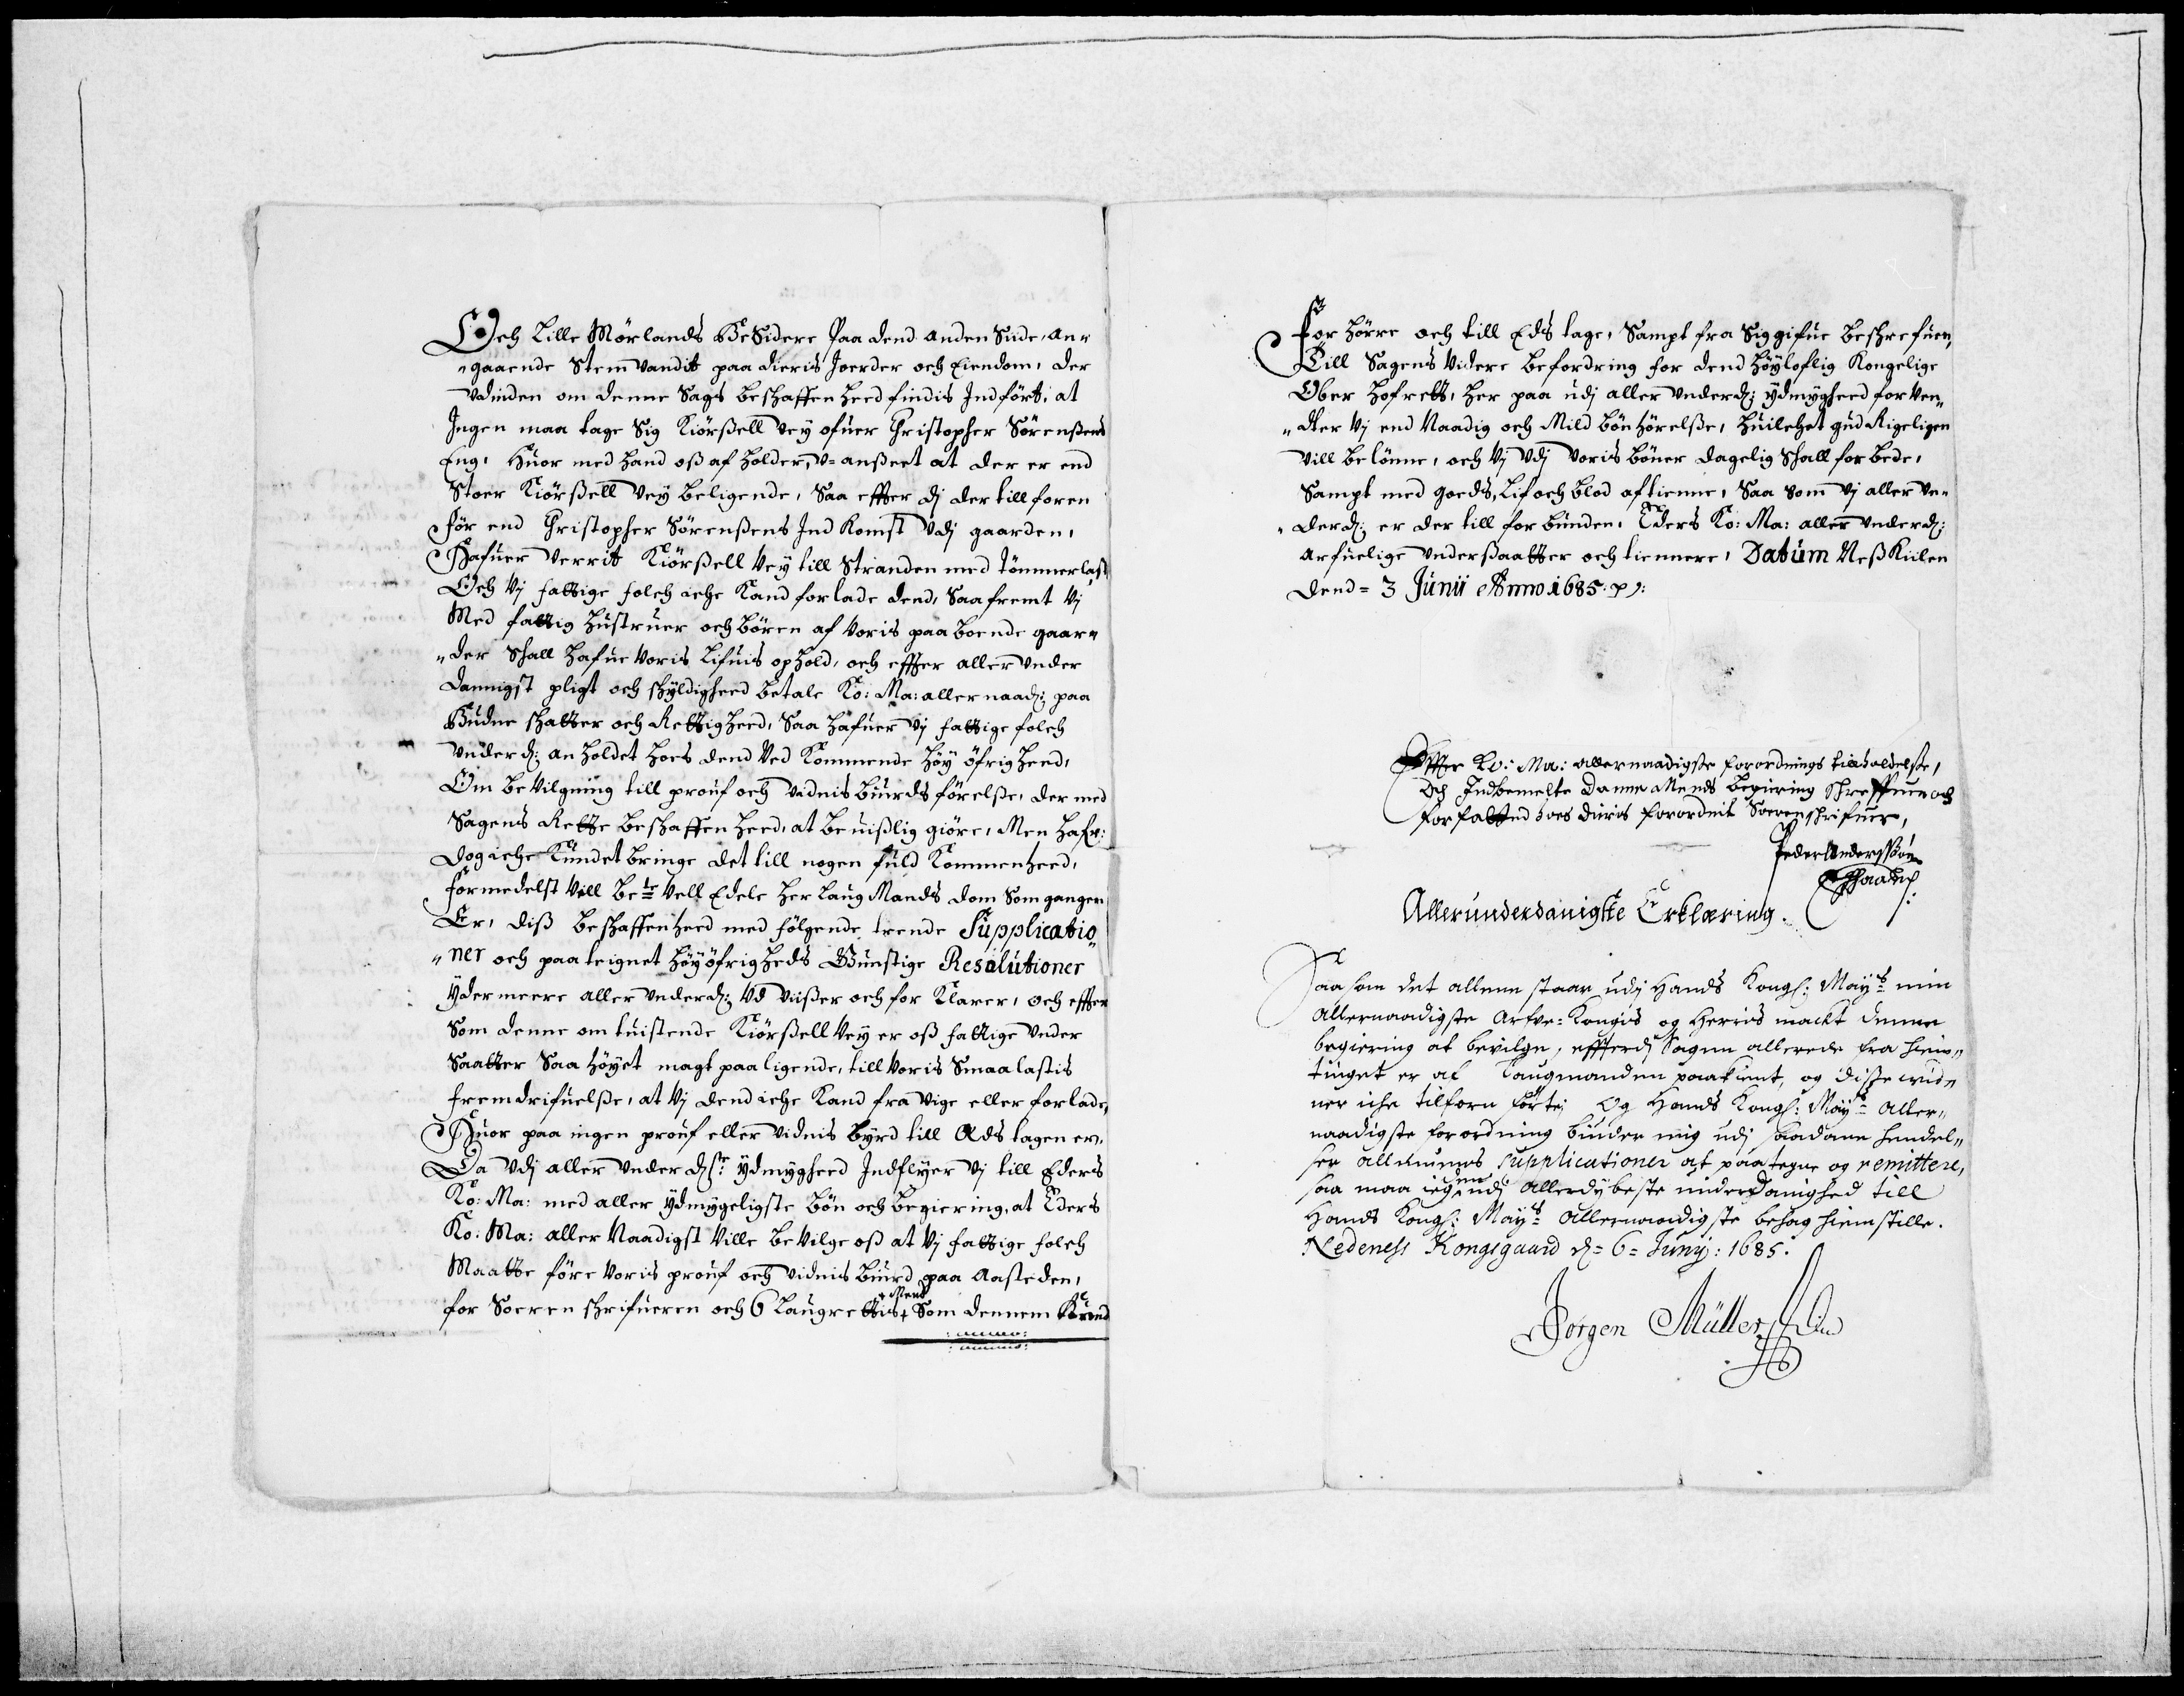 Och Lille Mörlands Besidere Paa dend anden Siide, an„
„gaaende Stem vandit paa dieris Joerder och Eiendom, der
vdinden om denne Sags beschaffenheed findis Indfört, at
Ingen maa tage Sig Kiörßell vey ofuer Christopher Sörenßens
Eng, Huor med hand oß af holder, v-anßeet at der er end
Stoer Kiörßell vey beligende, Saa effter dj der till foren
för end Christopher Sörenßens Ind Komst vdj gaarden,
Hafuer verrit Kiörßell vey till Stranden med tömmerlast
Och Vj fattige folch iche Kand forlade dend, Saa fremt Vj
Med fattig hustruer och bören af voris paa boende gaar„
„der Shall hafue voris Lifuis ophold, och effter aller vnder
dannigst pligt och schyldigheed betale Ko: Ma: aller naad: paa
Budne schatter och Rettigheed, Saa hafuer vj fattige folch
vnderd: an holdet hoes dend Ved Kommende höy öfrigheed,
Om beVilgning till prouf och vidnis biurds förelße, der med
Sagens Rette beschaffenheed, at beuißlig giöre, Men hafr:
dog iche Kundet bringe det till nogen fuld Kommenheed,
formedelst Vill Bete Vell Edele her Laug Mands dom Som gangen
Er, diß beschaffenheed med fölgende trende Supplicatio„
„ner och paateignet höyöfrigheds Gunstige Resolutioner
Ydermeere aller vnderd: vd viißer och for Klarer, och effter
Som denne om tuistende Kiörßell vey er oß fattige vnder
Saatter Saa höyet magt paaligende, till voris Smaa lastis
fremdrifuelße, at Vj dend iche Kand fra vige eller forlade,
Huor paa ingen prouf eller vidnis byrd till Ads tagen er,
Da vdj aller vnder dste ydmygheed Indflyer Vj till Eders
Ko: Ma: med aller ydmygeligste bön och begiering, at Eders
Ko: Ma: aller Naadigst Ville beVilge oß at Vj fattige folch
Maatte före voris prouf och vidnis biurd paa Aasteden,
for Soeren schrifueren och 6 Laugrettis + Mend Som dennem Kunde
For hörre och till Eds tage, Sampt fra Sig gifue beschrefuen,
Till Sagens Videre befordring for dend höyloflig Kongelige
Ober hofrett, her paa udj aller vnderd: ydmygheed for ven„
„dter Vj end Naadig och Mild bönhörelße, huilchet gud Rigeligen
Vill belönne, och Vj vdj voris böner dagelig Schall for bede,
Sampt med goeds, Lif och blod aftienne, Saa som vj aller vn„
„derd: er der till forbunden. Eders Ko: Ma: aller vnderd:
arfuelige vnderßaatter och tiennere, Datum Neß Kiilen
dend = 3 Junii Anno 1685. p:
Effter Ko: Ma: allernaadigste forordnings tilholdelße,
Och Indbemelte Danne Mends begiering schreffuen och
forfatted hoes diiris forordnit Sorenschrifuer,
Peder Anderßsön
Allerunderdanigste Erklæring.
Saasom det alleene staar udj Hands Kongl: Mayts min
Allernaadigste Arfve-Kongis og Herris mackt denne
begiering at bevilge, effterdj Sagen allerede fra hiem„
tinget er af Laugmanden paakient, og diße vid„
ner iche tilforn förte; Og Hands Kongl: Mayts Aller„
naadigste forordning binder mig udj saadane hendel„
ser allmuens supplicationer at paategne og remittere,
saa maa iegsden udj Allerdybeste underdanighed till
Hands Kongl: Mayts Allernaadigste behag hiemstille.
Nedeness Kongsgaard d= 6= Junij: 1685.
Jörgen Müller